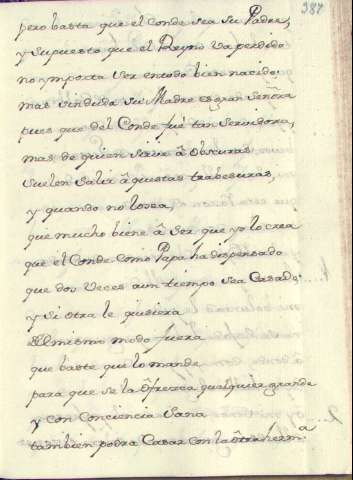 387
pero basta que el Conde sea su Padre,
y supuesto que el Reyno va perdido
no ymporta ser en todo bien nacido;
mas sin duda su Madre es gran Señora
pues que del Conde fué tan Servidora,
mas de quien sirve â obscuras
suelen salir âquestas trabesuras,
y quando no lo sea,
que mucho biene â ser que yo lo crea
que el Conde como Papa ha dispensado
que dos veces aun tiempo sea Casado;
y si otra le quisiera
del mismo modo fuera
que baste que lo mande
para que se la ôfrezca qualquier grande
y con Conciencia Sana
tambien podra Casar con la ôtra herm.ª